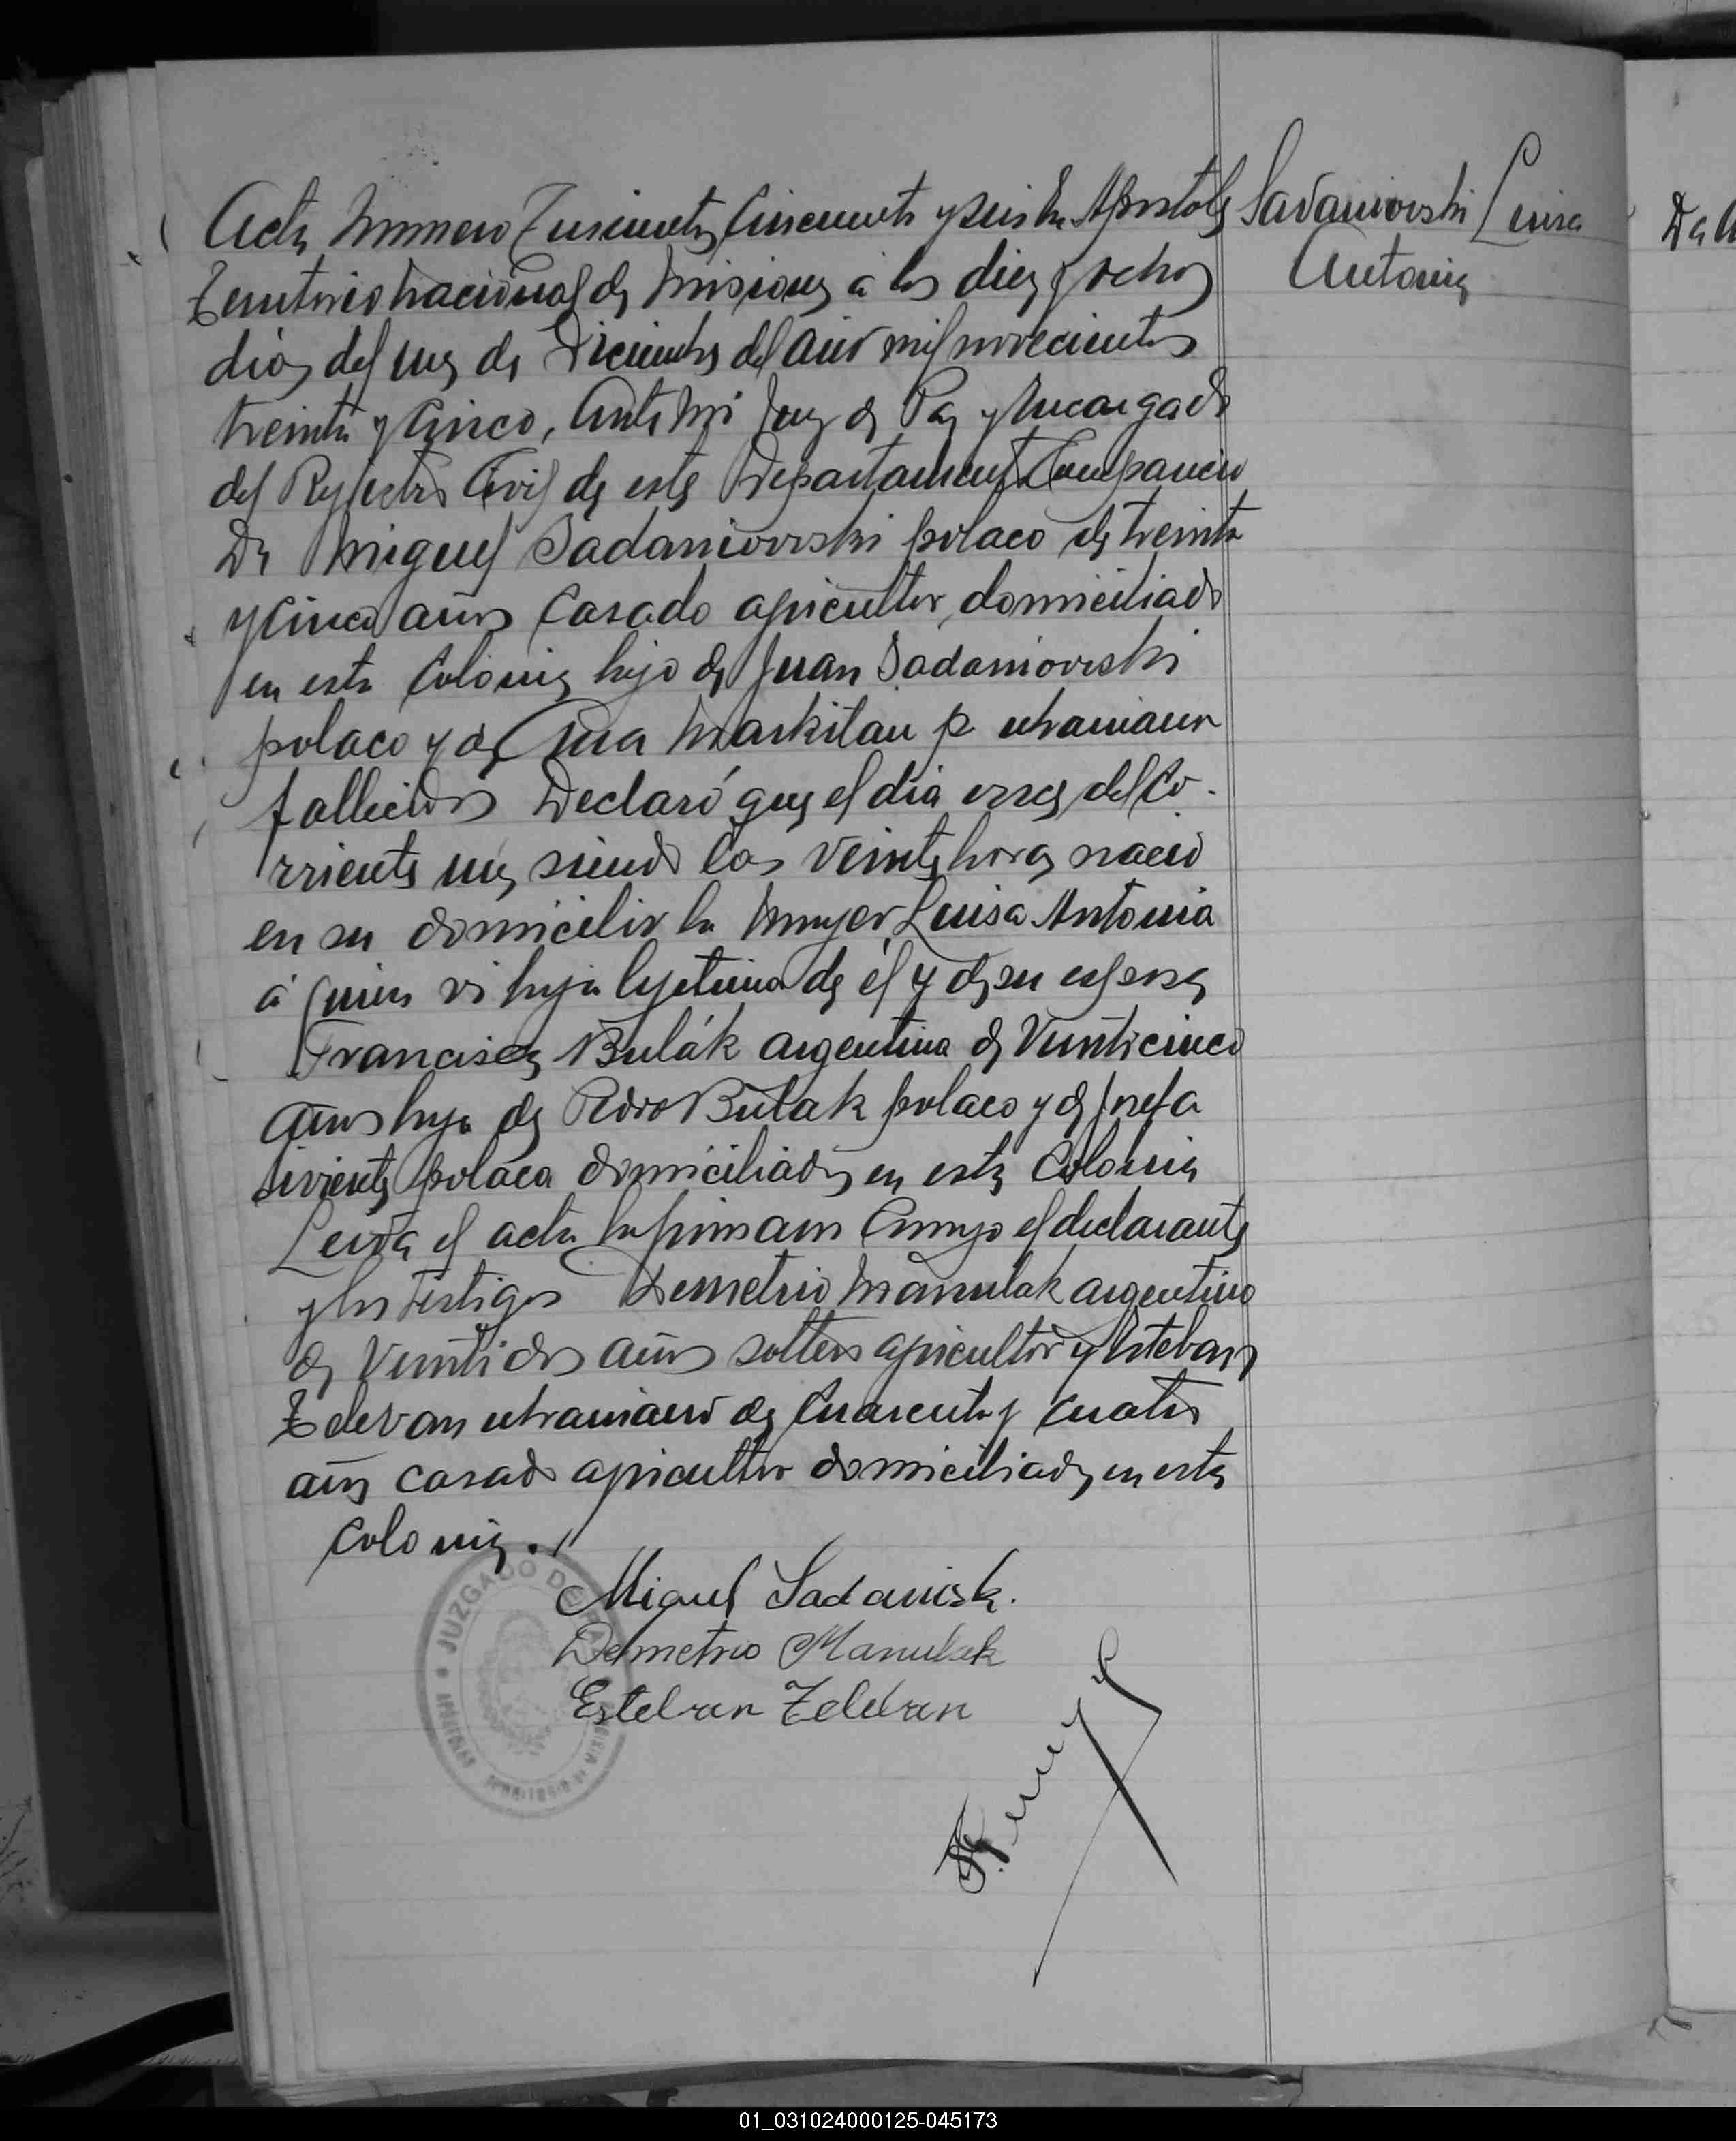 Acta Numero Trescientos Cincuenta y seis En Apostoles
Territorio nacional de Misiones a los diez y ocho
días del mes de Diciembre del año mil novecientos
treinta y Cinco, Ante Mi Juez de Paz y Encargado
del Registro Civil de este Departamento Compareció
Dn Miguel Sadaniovski polaco de treinta
y Cinco años Casado agricultor, domiciliado
en esta Colonia hijo de Juan Sadaniovski
polaco y de Ana Markitau ukraniana
fallecidos Declaró que el día once del Co-
rriente mes siendo las veinte horas nació
en su domicilio la mujer Luisa Antonia
á quien vi hija legitima de él y de su esposa
Francisca Bulák argentina de Veinticinco
años hija de Pedro Bulak polaco y de Josefa
polaca domiciliados en esta Colonia
Leida el acta la firmaron Conmigo el declarante
y los testigos Demetrio Manulak argentino
de Veintidos años soltero agricultor y Esteban
Zeleban ukraniano de Cuarenta y Cuatro
años casado agricultor domiciliados en esta
Colonia.
Sadaniovski Luisa
Antonia
Da
Miguel Sadaniosk.
Demetrio Manulak
Esteban Zeleban
JUZGADO DE PAZ
APOSTOLES
01_031024000125-045173